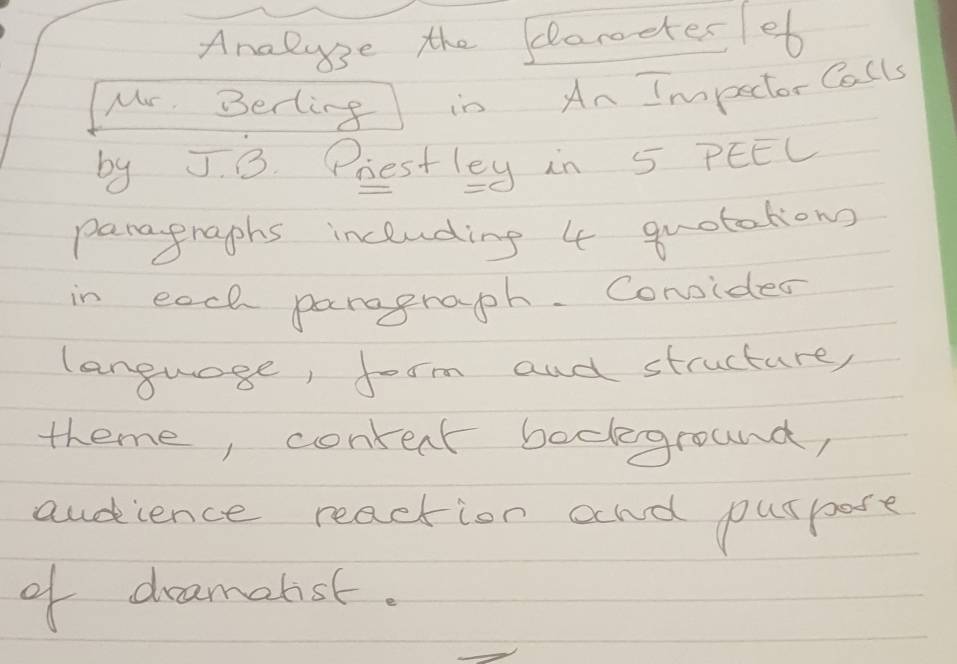 Analyze the character of
Mr. Berling in An Inspector Calls
by J.B. Priestley in 5 PEEL
paragraphs including 4 quotations
in each paragraph. Consider
language, form and structure,
theme, context background,
audience reaction and purpose
of dramatist.